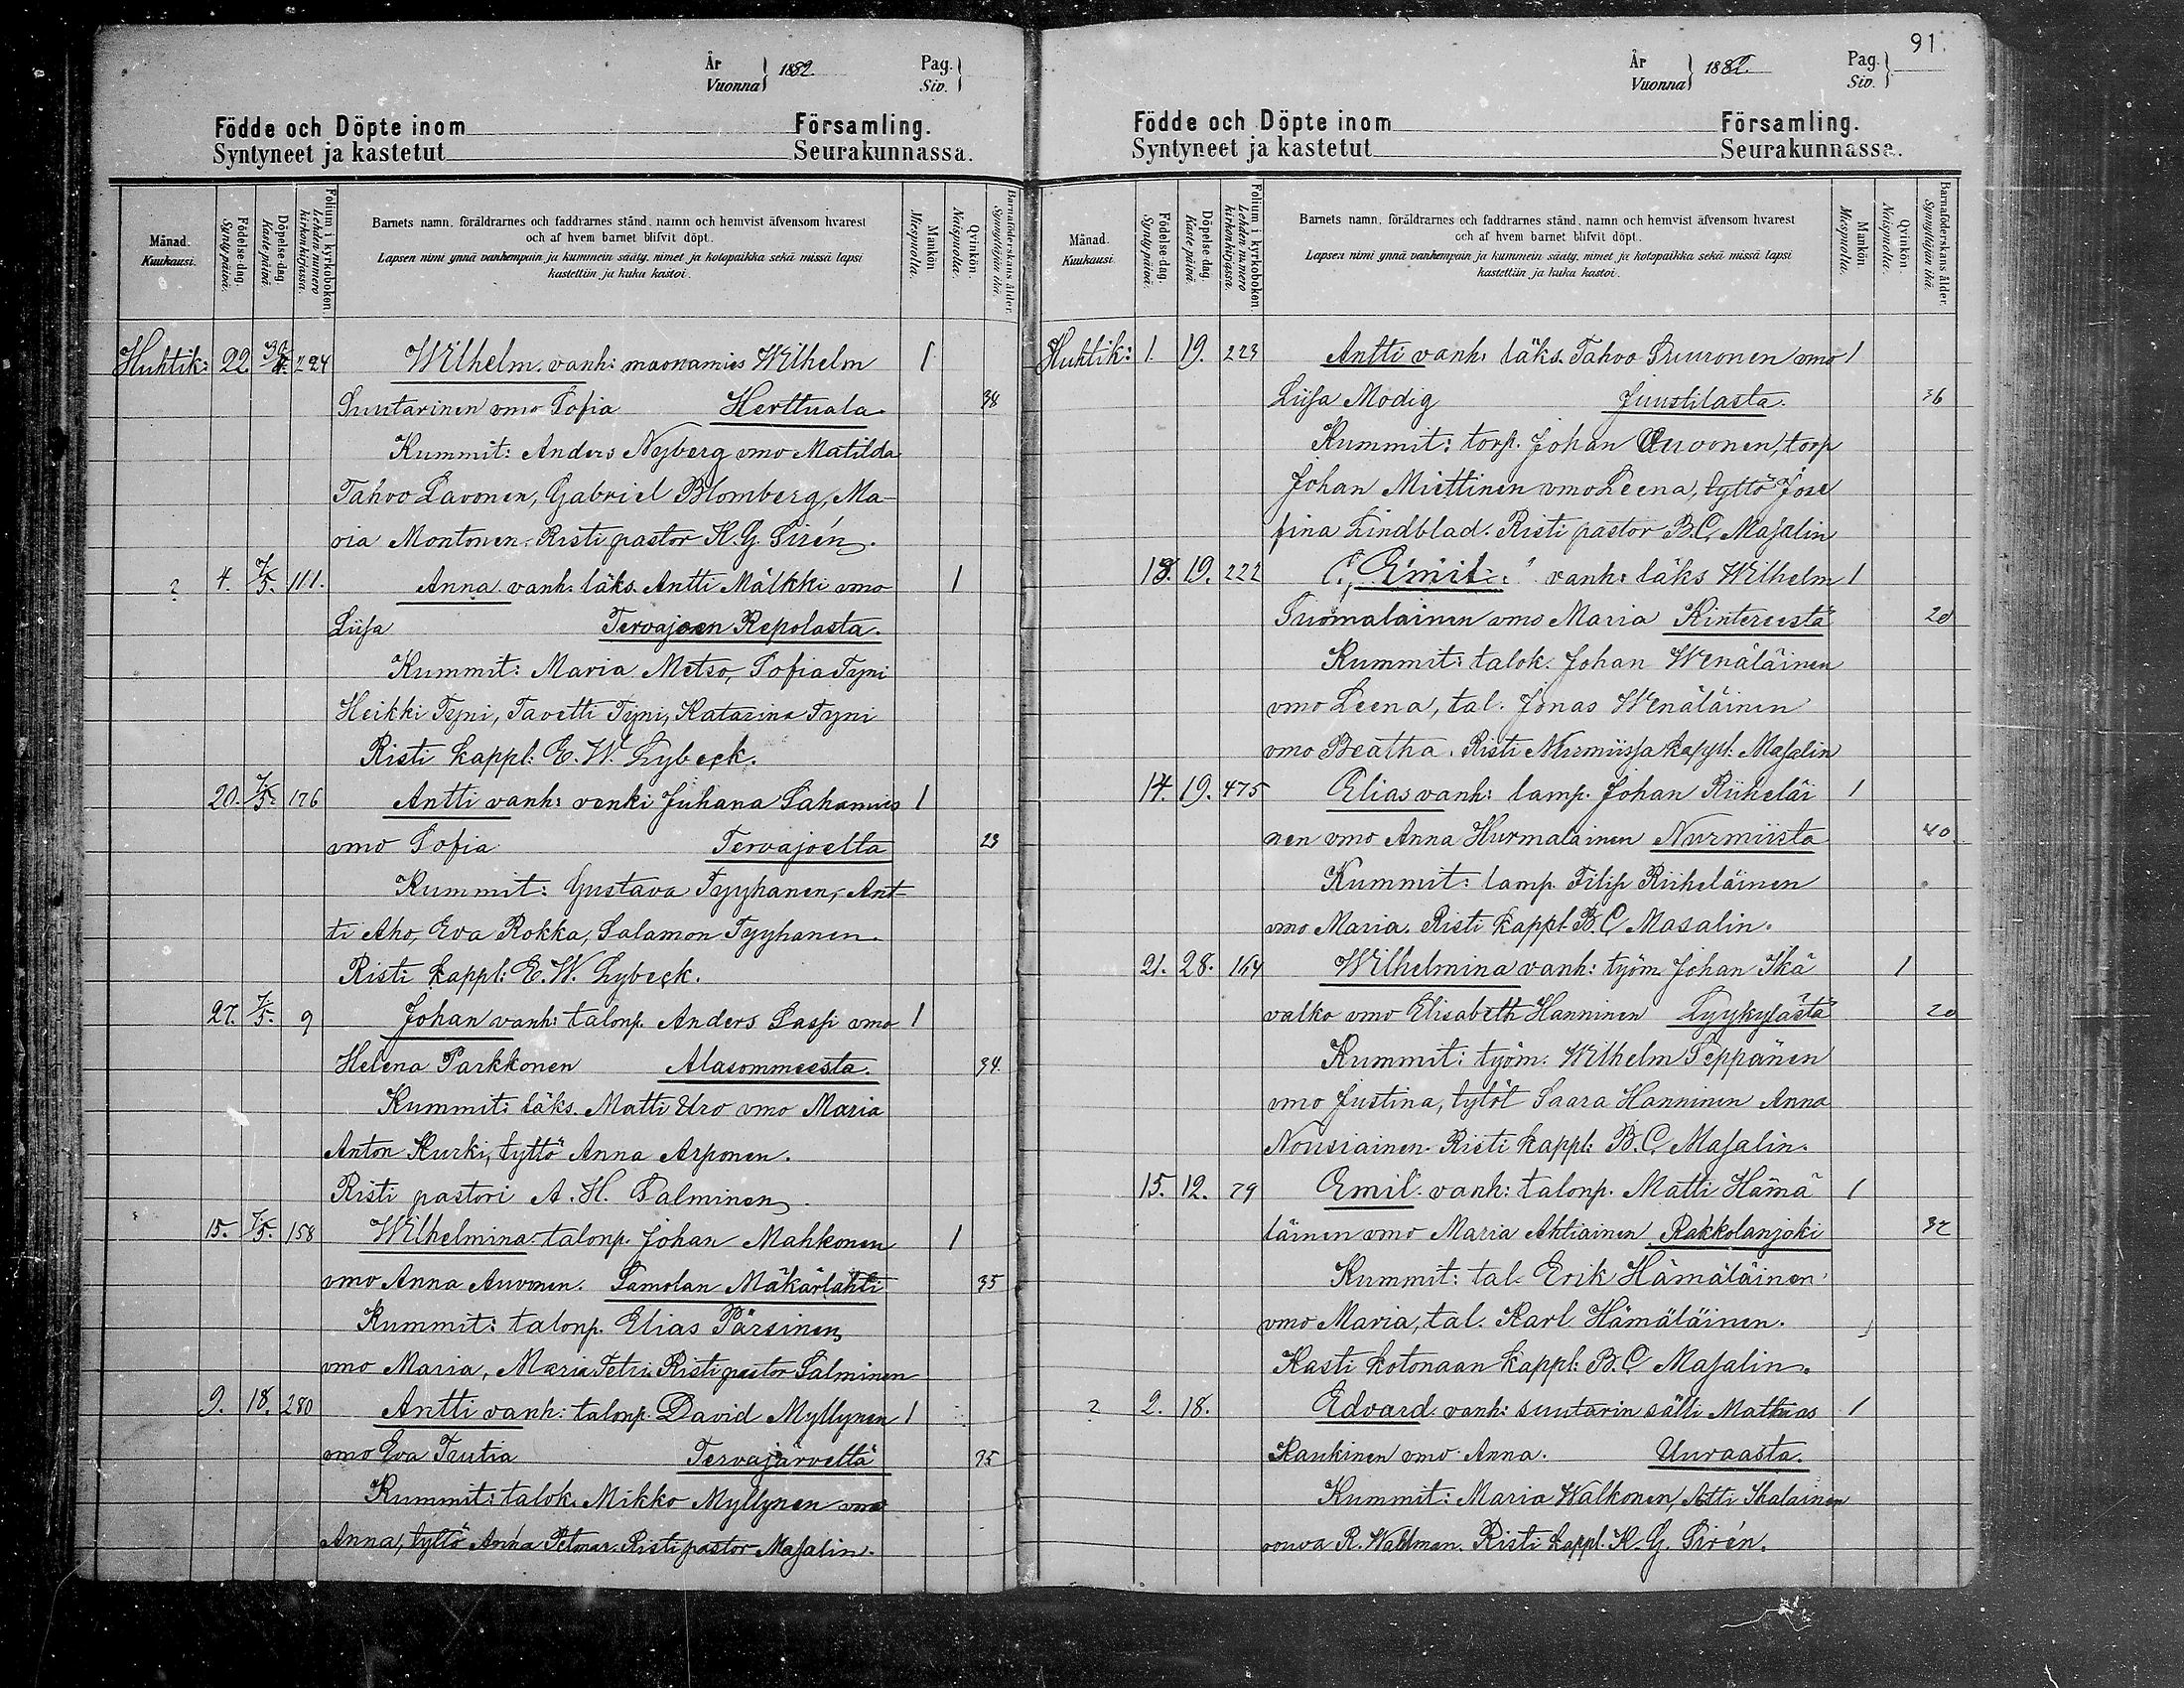 91.
År
Vuonna } 1882.
Pag.
Siv. }
Födde och Döpte inom Församling.
Syntyneet ja kastetut Seurakunnassa.
Månad.
Kuukausi.
Födelse-dag.
Syntypäivä.
Döpelse-dag.
Kastepäivä.
Folium i kyrkoboken.
Lehden numero kirkonkirjassa.
Barnets namn, föräldrarnes och faddrarnes stånd, namn och hemvist äfvensom hvarest
och af hvem barnet blifvit döpt.
Lapsen nimi ynnä vanhempain ja kummein sääty, nimet ja kotopaikka sekä missä lapsi
kastettiin ja kuka kastoi.
Mankön
Miespuolta.
Qvinkön.
Naispuolta.
Barnaföderskans ålder.
Synnyttäjän ikä.
Huhtik: 22. 30/4. 224 Wilhelm. vanh: maonamies Wilhelm 1
Suutarinen vmo Sofia Herttuala. 38
Kummit: Anders Nyberg vmo Matilda
Tahvo Lavonen, Gabriel Blomberg, Ma-
ria Montonen. Risti pastor K. G. Sirén.
? 4. 7/5. 111. Anna vanh: läks. Antti Mälkki vmo 1
Liisa Tervajoen Repolasta.
Kummit: Maria Metso, Sofia Tyni
Heikki Tyni, Tavetti Tyni, Katarina Tyni
Risti kappl: E. W. Lybeck.
20. 7/5. 176 Antti vanh: renki Juhana Lahamies 1
vmo Sofia Tervajoelta 23
Kummit: Gustava Tyyhanen, Ant-
ti Aho, Eva Rokka, Salamon Tyyhanen.
Risti kappl: E. W. Lybeck.
27. 7/5. 9 Johan vanh: talonp. Anders Lassi vmo 1
Helena Parkkonen Alasommeesta. 34.
Kummit: läks. Matti Uro vmo Maria
Anton Kurki, tyttö Anna Arponen.
Risti pastori A. H. Salminen.
15. 7/5. 158 Wilhelmina talonp. Johan Mahkonen 1
vmo Anna Auvonen. Samolan Mäkärlahti 35
Kummit: talonp. Elias Pärsinen
vmo Maria, Maria Petri. Risti pastor Salminen
9. 18. 280 Antti vanh: talonp. David Myllynen 1
vmo Eva Teutia Tervajärveltä 35
Kummit: talok. Mikko Myllynen vmo
Anna, tyttö Anna Petman. Risti pastor Masalin.
År
Vuonna } 1882.
Pag.
Siv. }
Födde och Döpte inom Församling.
Syntyneet ja kastetut Seurakunnassa.
Månad.
Kuukausi.
Födelse-dag.
Syntypäivä.
Döpelse-dag.
Kastepäivä.
Folium i kyrkoboken.
Lehden numero kirkonkirjassa.
Barnets namn, föräldrarnes och faddrarnes stånd, namn och hemvist äfvensom hvarest
och af hvem barnet blifvit döpt.
Lapsen nimi ynnä vanhempain ja kummein sääty, nimet ja kotopaikka sekä missä lapsi
kastettiin ja kuka kastoi.
Mankön.
Miespuolta.
Qvinkön.
Naispuolta.
Barnaföderskans ålder.
Synnyttäjän ikä.
Huhtik: 1. 19. 223 Antti vanh: läks. Tahvo Suuronen vmo 1
Liisa Modig Juustilasta. 36
Kummit: torp. Johan Auvonen, torp
Johan Miettinen vmo Leena, tyttö Jose
fina Lindblad. Risti pastor B. C. Masalin
18. 19. 222 "Emil:" vanh: läks Wilhelm 1
Suomalainen vmo Maria Kintereestä 20
Kummit: talok. Johan Wenäläinen
vmo Leena, tal. Jonas Wenäläinen
vmo Beatha. Risti Nurmiissa kappl: Masalin
14. 19. 475 Elias vanh: lamp. Johan Riiheläi 1
nen vmo Anna Hurmalainen Nurmiista 40.
Kummit: lamp. Filip Riiheläinen
vmo Maria. Risti kappl. B. C. Masalin.
21. 28. 164 Wilhelmina vanh: työm. Johan Ikä 1
valko vmo Elisabeth Hanninen Lyykylästä 20
Kummit: työm. Wilhelm Seppänen
vmo Justina, tytöt Saara Hanninen Anna
Nousiainen. Risti kappl: B. C. Masalin.
15. 12. 79 Emil vanh: talonp. Matti Hämä 1
läinen vmo Maria Ahtiainen Rakkolanjoki 32
Kummit: tal. Erik Hämäläinen
vmo Maria, tal. Karl Hämäläinen.
Kasti kotonaan kappl: B. C. Masalin.
? 2. 18. Edvard vanh: suutarin sälli Mathias 1
Kaukinen vmo Anna. Uuraasta.
Kummit: Maria Walkonen, Atti Skalainen
rouva R. Waldman. Risti kappl. K. G. Sirén.